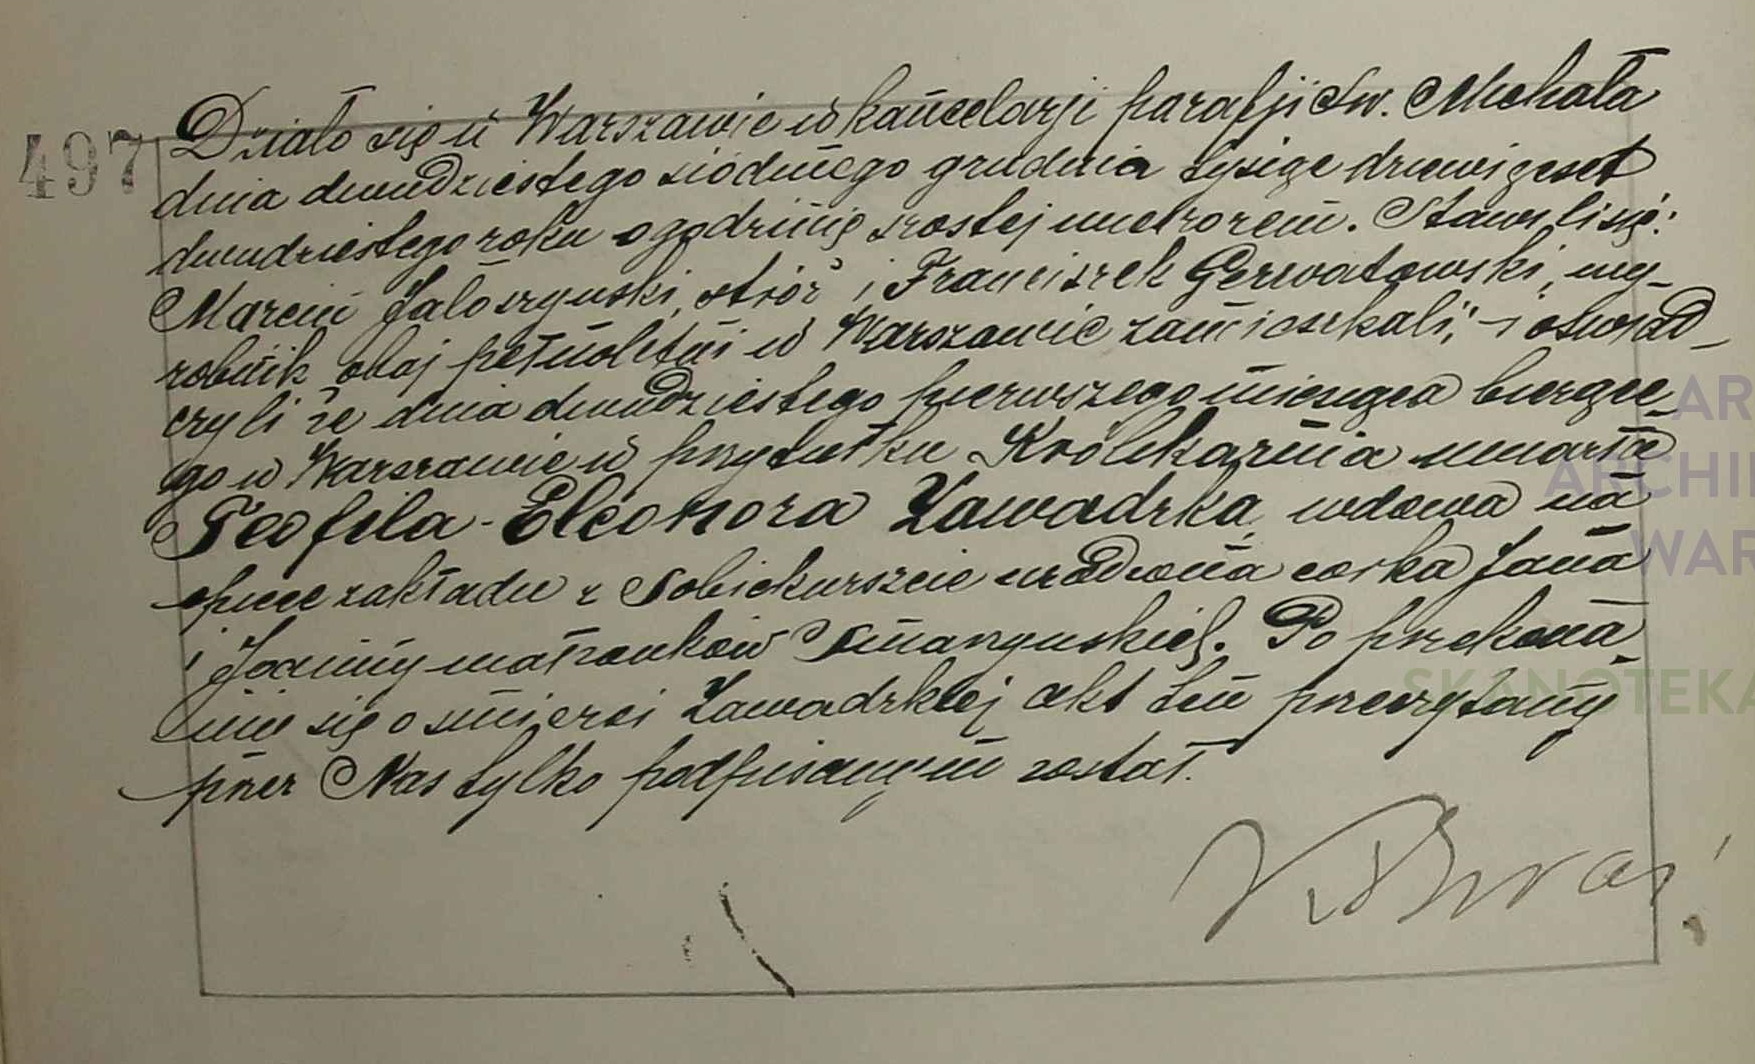 497
Działo się w Warszawie w kancelarji parafji św. Michała
dnia dwudziestego siódmego grudnia tysiąc dziewięćset
dwudziestego roku o godzinie szóstej wieczorem. Stawili się:
Marcin Jałoszyński, stróż i Franciszek Gerwatowski, wy-
robnik, obaj pełnoletni w Warszawie zamieszkali, i oświad-
czyli że dnia dwudziestego pierwszego miesiąca bieżące-
go w Warszawie w przytułku Królikarnia umarła
Teofila-Eleonora Zawadzka, wdowa na
opiece zakładu z Sobiekurszcie urodzona córka Jana
i Joanny małżonków Smarzyńskich. Po przekona-
niu się o śmierci Zawadzkiej akt ten przeczytany
przez Nas tylko podpisanym został.
AR
ARCHI
WAR
SKANOTEKA